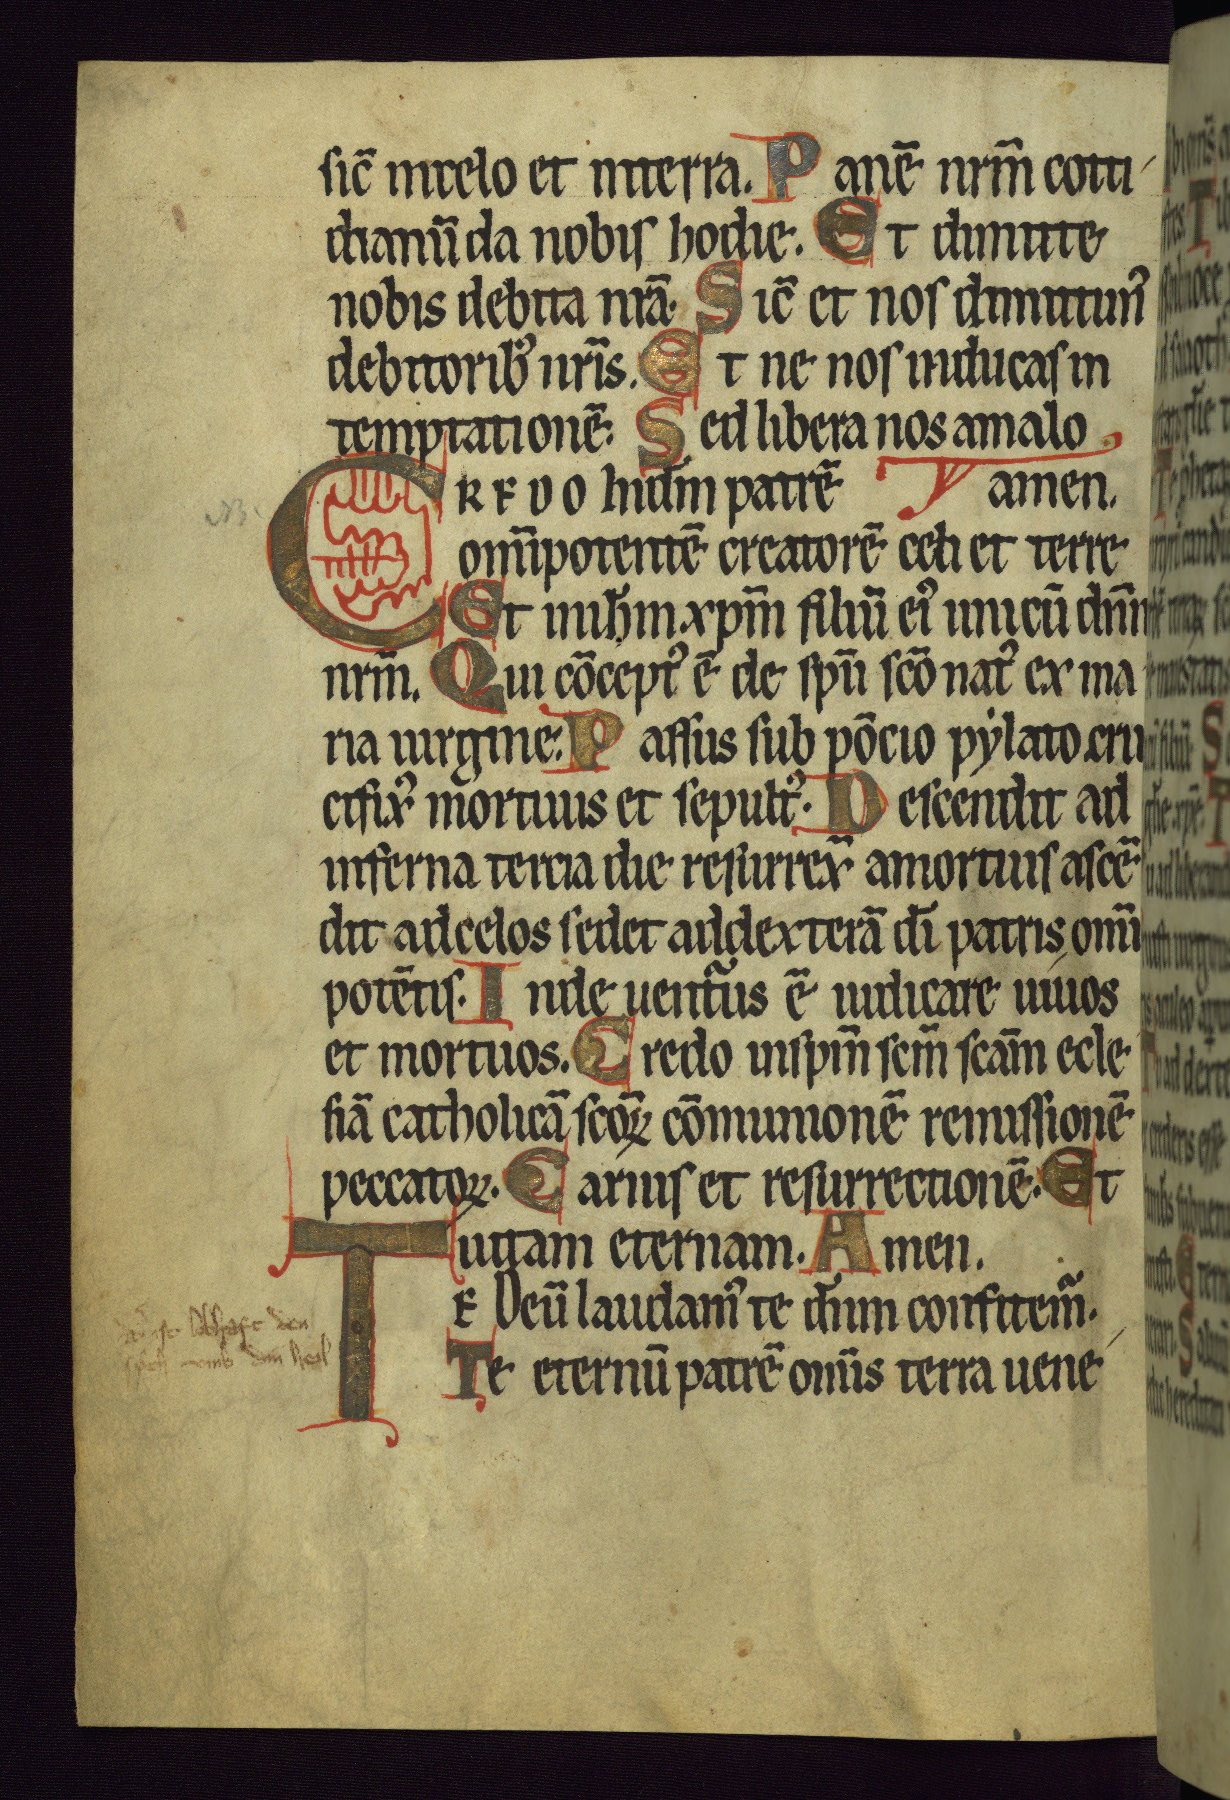 sic̄ incelo et interra. Panē nrm̄ cotti
dianū da nobis hodie. Et dimitte
nobis debita nrā. Sic̄ et nos dimittim᾽
debitorib᾽ nrīs. Et ne nos inducas in
temptationē. Sed libera nos amalo.
CREDO indm̄ patrē amen.
omīpotentē creatorē celi et terre
Et inihm̄ xpm̄ filiū ei᾽ unicū dnm̄
nrm̄. Qui cōcept᾽ ē de spū scō nat᾽ ex ma
ria uirgine. Passus sub pōcio pylato cru
cifix᾽ mortuus et sepult᾽. Descendit ad
inferna tercia die resurrex̄ amortuis ascē
dit adcelos sedet addexterā dī patris omī
potētis. Inde uentur᾽us ē iudicare uiuos
et mortuos. Credo inspm̄ scm̄ scām ecle
siā catholicā scoꝝ cōmunionē remissionē
peccatoꝝ. Carnis et resurrectionē. Et
uitam eternam. Amen.
TE Deū laudam᾽ te dn̄m confitem̄.
Te eternū patrē omīs terra uene